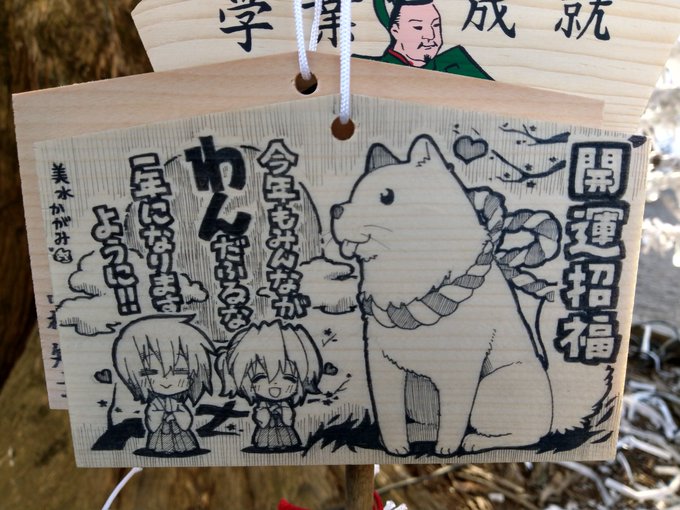 学業成就
開運招福
今年もみんなが
わんだふるな
一年になります
ように!!
美水かがみ